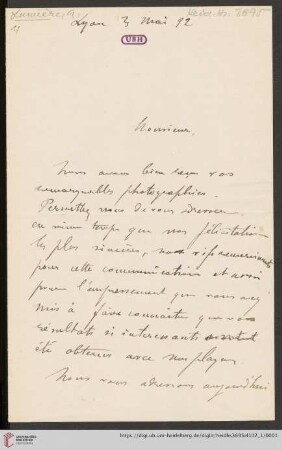 Lumière, A.
Heid. Hs. 3695
11
Lyon 3 Mai 92
UBH
Monsieur,
Nous avons bien reçu vos
remarquables photographies.
Permettez nous de vous adresser
en même temps que nos félicitations
les plus sincères, nos remerciements
pour cette communication et aussi
pour l'empressement que vous avez
mis à faire connaître que vos
résultats si intéressants
été obtenus avec nos plaques
Nous vous adressons aujourd'hui
UNIVERSITÄTS-
BIBLIOTHEK
HEIDELBERG
https://digi.ub.uni-heidelberg.de/diglit/heidhs3695ef102_1/0001